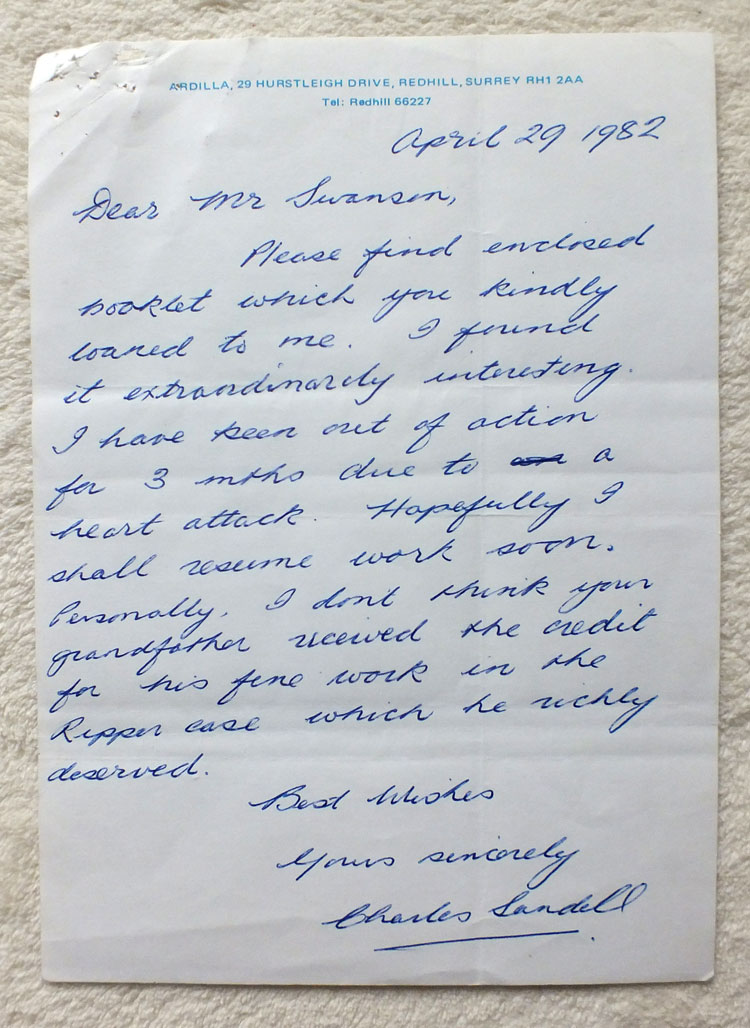 ARDILLA, 29 HURSTLEIGH DRIVE, REDHILL, SURREY RH1 2AA
Tel: Redhill 66227
April 29 1982
Dear Mr Swanson,
Please find enclosed
booklet which you kindly
loaned to me. I found
it extraordinarily interesting.
I have been out of action
for 3 mths due to a
heart attack. Hopefully I
shall resume work soon.
Personally, I dont think your
grandfather received the credit
for his fine work in the
Ripper case which he richly
deserved.
Best Wishes
Yours sincerely
Charles Sandell